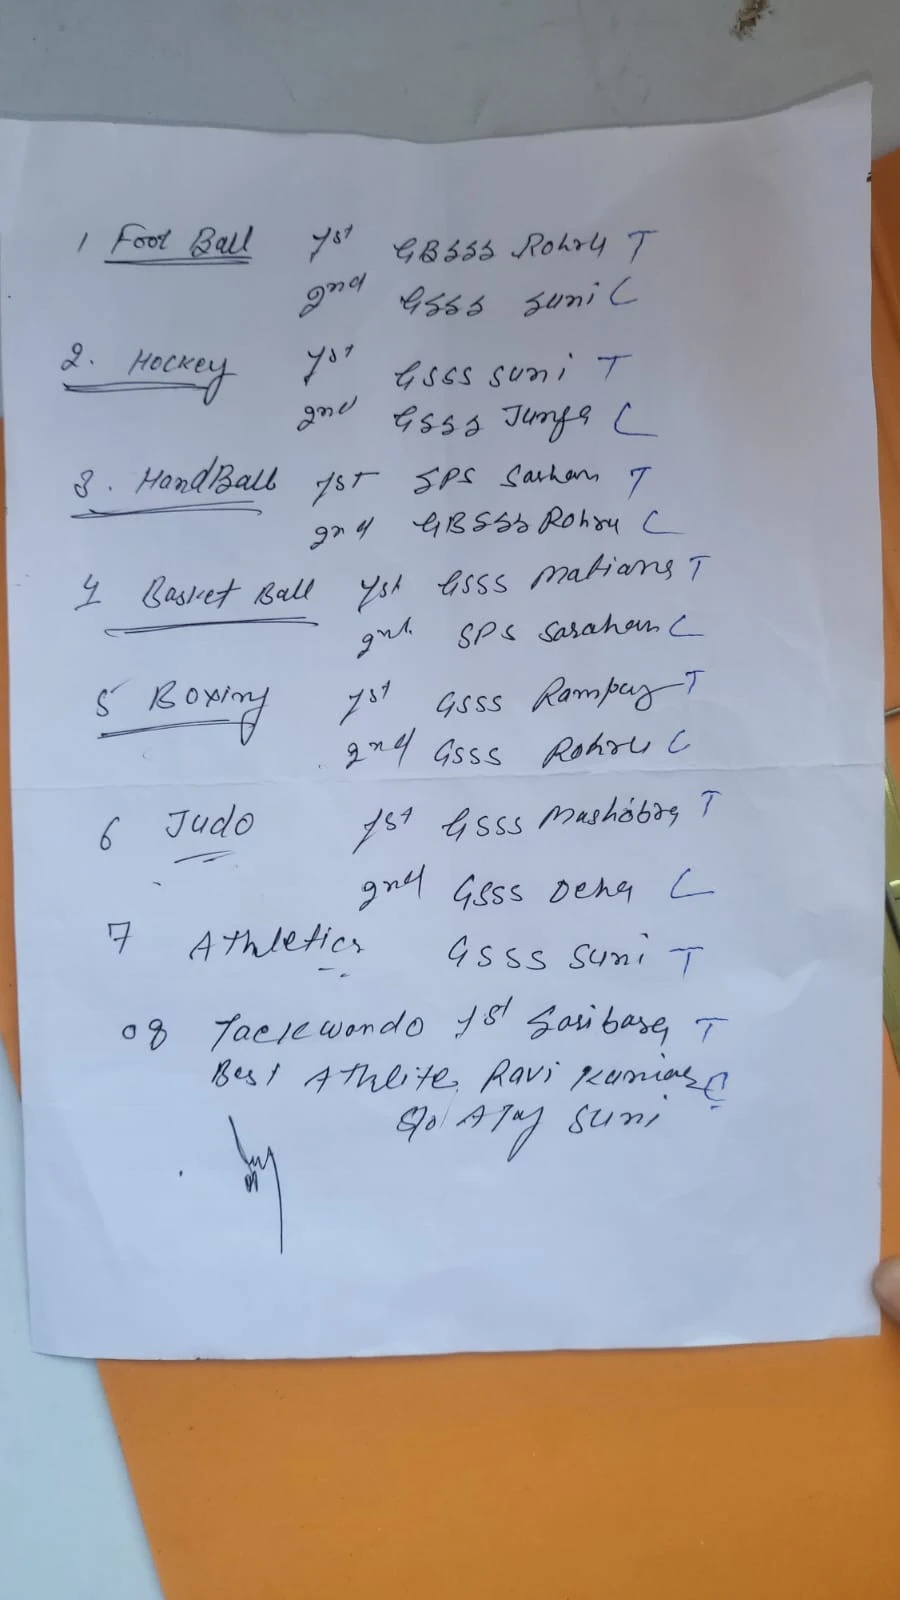 1 Foot Ball 1st GBSSS Rohru T
2nd GSSS Suni C
2. Hockey 1st GSSS Suni T
2nd GSSS Junga C
3. HandBall 1st SPS Sarhan T
2nd GBSSS Rohru C
4 Basket Ball 1st GSSS Matiana T
2nd SPS Sarahan C
5 Boxing 1st GSSS Rampur T
2nd GSSS Rohru C
6 Judo 1st GSSS Mashobra T
2nd GSSS C
7 Athletics GSSS Suni T
08 Taekwondo 1st T
Best Athlite Ravi Kumar C
S/o Ajay Suni